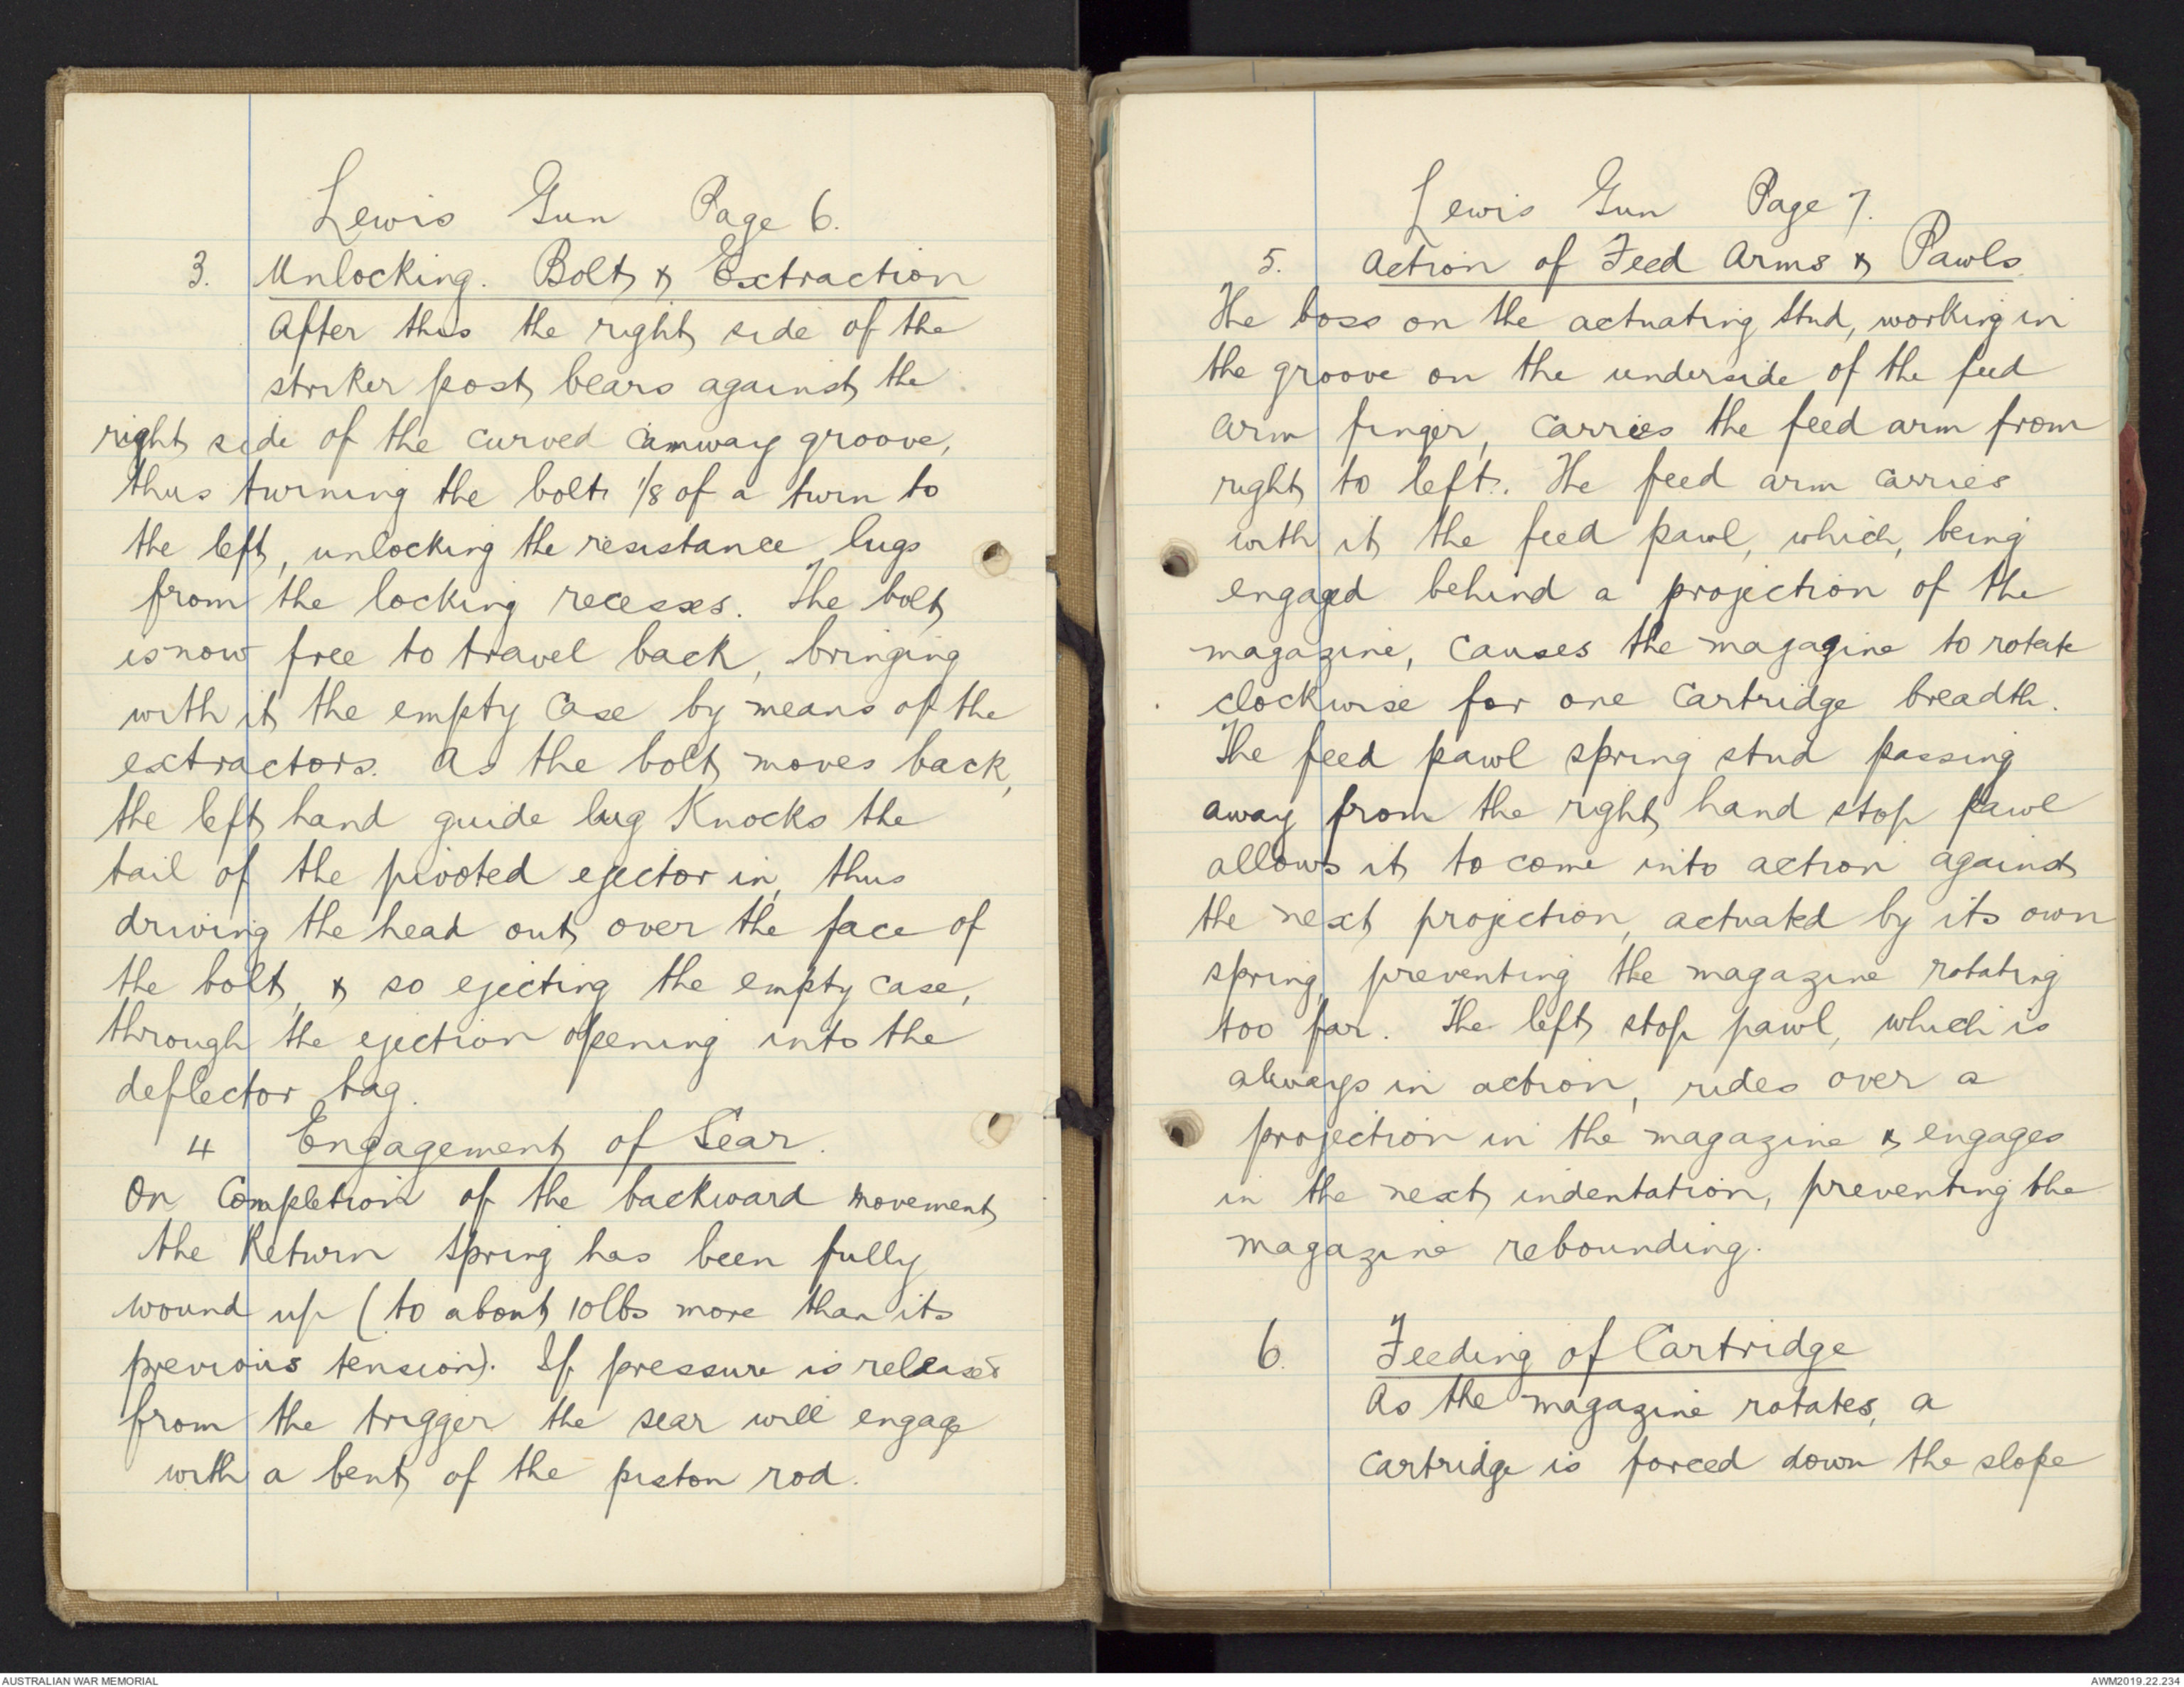 Lewis Gun Page 6.
3. Unlocking. Bolt & Extraction
After this the right side of the
striker post bears against the
right side of the curved camway groove,
thus turning the bolt 1/8 of a turn to
the left, unlocking the resistance lugs
from the locking recesses. The bolt
is now free to travel back, bringing
with it the empty case by means of the
extractors. As the bolt moves back,
the left hand guide lug knocks the
tail of the pivoted ejector in, thus
driving the head out over the face of
the bolt, & so ejecting the empty case,
through the ejection opening into the
deflector bag.
4 Engagement of Sear.
On Completion of the backward movement
the Return Spring has been fully
wound up (to about 10lbs more than its
previous tension). If pressure is released
from the trigger the sear will engage
with a bent of the piston rod.
Lewis Gun Page 7.
5. Action of Feed Arms & Pawls
The boss on the actuating stud, working in
the groove on the underside of the feed
arm finger, carries the feed arm from
right to left. The feed arm carries
with it the feed pawl, which, being
engaged behind a projection of the
magazine, causes the magazine to rotate
clockwise for one cartridge breadth.
The feed pawl spring stud passing
away from the right hand stop pawl
allows it to come into action against
the next projection, actuated by its own
spring, preventing the magazine rotating
too far. The left stop pawl, which is
always in action, rides over a
projection in the magazine & engages
in the next indentation, preventing the
magazine rebounding.
6. Feeding of Cartridge
As the magazine rotates, a
cartridge is forced down the slope
AUSTRALIAN WAR MEMORIAL
AWM2019.22.234